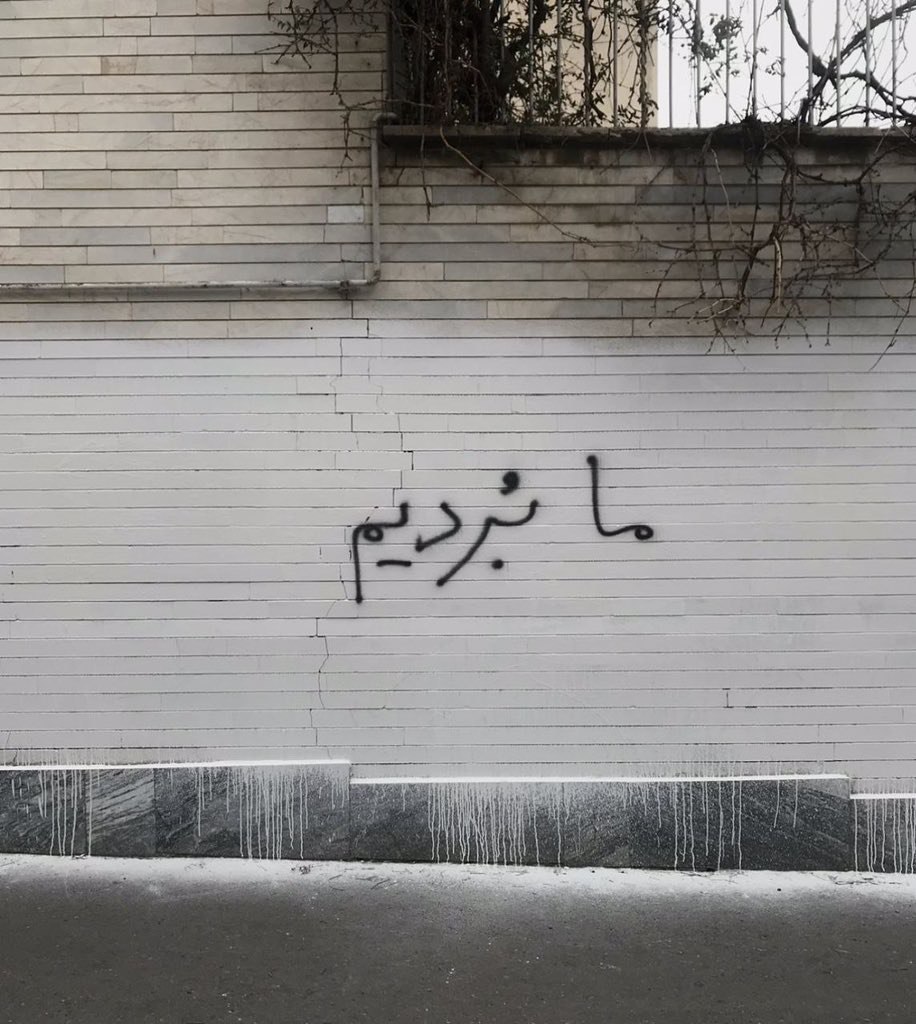 ما بُردیم